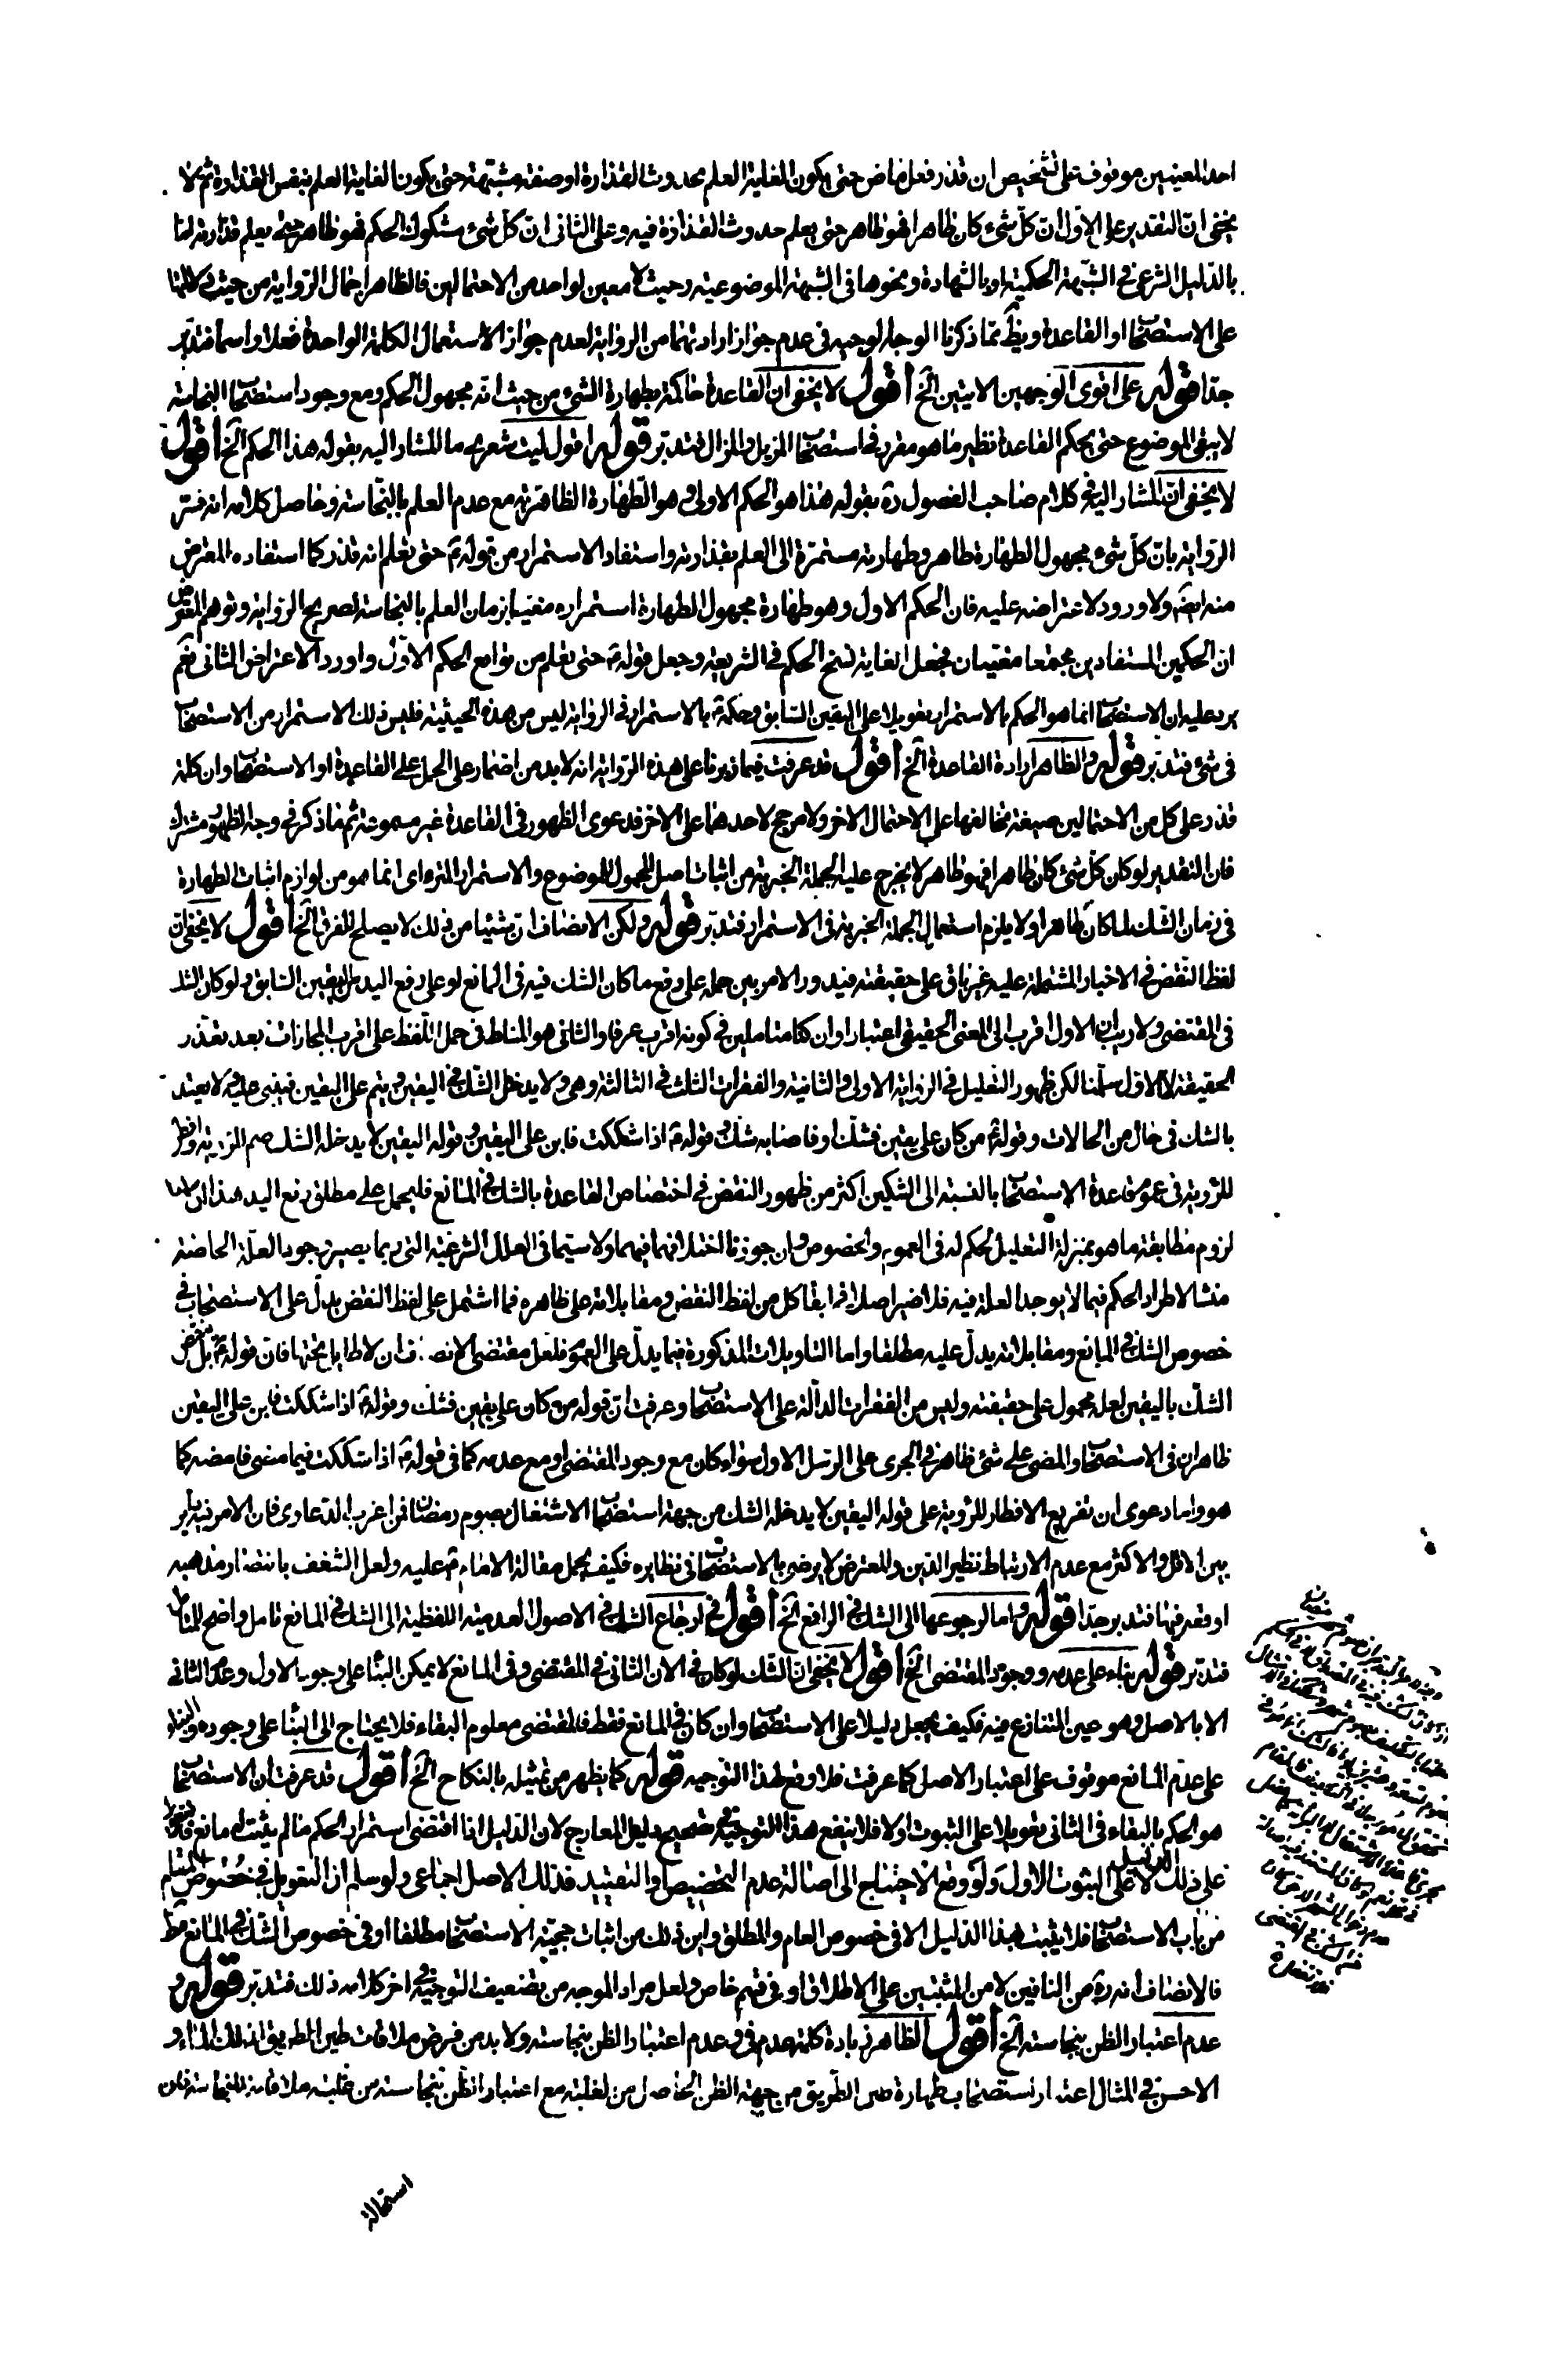 احد المعنيين موقوف على تشخيص ان قذر فعل ماض حتى يكون الغاية العلم بحدوث القذارة او صفة مشبهة حتى يكون الغاية العلم بنفس القذارة ثم لا
يخفى ان التقدير على الاول ان كل شيء كان طاهرا فهو طاهر حتى يعلم حدوث القذارة فيه وعلى الثانى ان كل شيء مشكوك الحكم فهو طاهر حتى يعلم قذارته امّا
بالدليل الشرعى فى الشبهة الحكمية او بالشهادة ونحوها فى الشبهة الموضوعية وحيث لا معين لواحد من الاحتمالين فالظاهر اجمال الرواية من حيث دلالتها
على الاستصحاب او القاعدة ويظهر مما ذكرنا الوجه الوجيه فى عدم جواز ارادتهما من الرواية لعدم جواز الاستعمال الكلمة الواحدة فعلا واسما فتدبر
جدا قوله على اقوى الوجهين الاتيين الخ اقول لا يخفى ان القاعدة حاكمة بطهارة الشيء من حيث انه مجهول الحكم ومع وجود استصحاب النجاسة
لا يبقى الموضوع حتى يحكم القاعدة نظير ما هو مقرر فى استصحاب المزيل والمزال فتدبر قوله اقول ليت شعرى ما المشار اليه بقوله هذا الحكم الخ اقول
لا يخفى ان المشار اليه فى كلام صاحب الفصول ره بقوله هذا هو الحكم الاولى وهو الطهارة الظاهرية مع عدم العلم بالنجاسة وحاصل كلامه انه فسر
الرواية بان كل شيء مجهول الطهارة طاهر وطهارته مستمرة الى العلم بقذارته واستفاد الاستمرار من قوله ع حتى تعلم انه قذر كما استفاده المعترض
منه ايضا ولا ورود لاعتراضه عليه فان الحكم الاول وهو طهارة مجهول الطهارة استمراره مغييا بزمان العلم بالنجاسة لصريح الرواية وتوهم المعترض
ان الحكمين المستفادين مجتمعا مغييان فجعل الغاية نسخ الحكم فى الشريعة وجعل قوله ع حتى تعلم من توابع الحكم الاول واورد الاعتراض الثانى نعم
يرد عليه ان الاستصحاب انما هو الحكم بالاستمرار تعويلا على اليقين السابق وحكمه ع بالاستمرار فى الرواية ليس من هذه الحيثية فليس ذلك الاستمرار من الاستصحاب
فى شيء فتدبر قوله والظاهر ارادة القاعدة الخ اقول قد عرفت فيما زبرنا على هذه الرواية انه لابد من اضمار على الحمل على القاعدة او الاستصحاب وان كلمة
قذر على كل من الاحتمالين صيغة تخالفها على الاحتمال الاخر ولا مرجح لاحدهما على الاخر فدعوى الظهور فى القاعدة غير مسموعة ثم ما ذكر فى وجه الظهور مشترك
فان التقدير لو كان كل شيء كان طاهرا فهو طاهر لا يخرج عليه الجملة الخبرية من اثبات اصل المحمول للموضوع والاستمرار المترواى انما هو من لوازم اثبات الطهارة
فى زمان الشك لما كان طاهرا ولا يلزم استعمال الجملة الخبرية فى الاستمرار فتدبر قوله ولكن الانصاف ان شيئا من ذلك لا يصلح للفرق الخ اقول لا يخفى ان
لفظ النقض فى الاخبار المشتملة عليه غير باق على حقيقته فيدور الامر بين حمله على رفع ما كان الشك فيه فى المانع لو على رفع اليد من اليقين السابق ولو كان الشك
فى المقتضى ولا ريب ان الاول اقرب الى المعنى الحقيقى اعتبارا وان كنا متاملين فى كونه اقرب عرفا والثانى هو المناط فى حمل اللفظ على اقرب المجازات بعد تعذر
الحقيقة لا الاول سلمنا لكن ظهور التعليل فى الرواية الاولى والثانية والفقرات الثلث فى الثالثة وهى ولا يدخل الشك فى اليقين ويتم على اليقين فيبنى عليه ولا يعتد
بالشك فى حال من الحالات وقوله ع من كان على يقين فشك او فاصابه شك وقوله ع اذا شككت فابن على اليقين وقوله اليقين لا يدخله الشك صم للرؤية وافطر
للرؤية فى عموم قاعدة الاستصحاب بالنسبة الى الشكين اكثر من ظهور النقض فى اختصاص القاعدة بالشك فى المانع فليحمل على مطلق رفع اليد هذا ان
لزوم مطابقة ما هو بمنزلة التعليل لحكم له فى العموم والخصوص وان جوزنا اختلافهما فيهما ولا سيما فى العلل الشرعية التى ربما يصير وجود العلة الخاصة
منشا لاطراد الحكم فيما لا يوجد العلة فيه فلا ضير اصلا فى ابقاء كل من لفظ النقض ومقابلاته على ظاهره فما اشتمل على لفظ النقض يدل على الاستصحاب فى
خصوص الشك فى المانع ومقابلاته يدل عليه مطلقا واما التاويلات المذكورة فيما يدل على العموم فلعل مقتضى الانصاف ان لا طائل تحتها فان قوله ع بل ينقض
الشك باليقين لعله محمول على حقيقته وليس من الفقرات الدالة على الاستصحاب وعرفت ان قوله من كان على يقين فشك وقوله ع اذا شككت فابن على اليقين
ظاهران فى الاستصحاب والمضى على شيء ظاهر فى الجرى على الرسل الاول سواء كان مع وجود المقتضى او مع عدمه كما فى قوله ع اذا شككت فيما مضى فامضه كما
هو واما دعوى ان تفريع الافطار للرؤية على قوله اليقين لا يدخله الشك من جهة استصحاب الاشتغال بصوم رمضان فمن اغرب الدعاوى فان الامر فيه دائر
بين الاقل والاكثر مع عدم الارتباط نظير الدين والمعترض لا يرضى بالاستصحاب فى نظايره فكيف يحمل مقالة الامام ع عليه ولعل الشغف بانتصار مذهبه
اوقعه فيها فتدبر جدا قوله واما لرجوعها الى الشك فى الرافع الخ اقول فى ارجاع الشك فى الاصول العدمية اللفظية الى الشك فى المانع تامل واضح للمتامل
فتدبر قوله بناء على عدمه ووجود المقتضى الخ اقول لا يخفى ان الشك لو كان فى الان الثانى فى المقتضى وفى المانع لا يمكن البناء على وجود الاول وعدم الثانى
الا بالاصل وهو عين المتنازع فيه فكيف يجعل دليلا على الاستصحاب وان كان فى المانع فقط فالمقتضى معلوم البقاء فلا يحتاج الى البناء على وجوده والبناء
على عدم المانع موقوف على اعتبار الاصل كما عرفت فلا وقع لهذا التوجيه قوله كما يظهر من تمثيله بالنكاح الخ اقول قد عرفت ان الاستصحاب
هو الحكم بالبقاء فى الثانى تعويلا على الثبوت اولا فلا ينفع هذا التوجيه فى تصحيح دليل المعارج لان الدليل اذا اقتضى استمرار الحكم ما لم يثبت له مانع
على ذلك الدليل لا على الثبوت الاول ولو وقع الاحتياج الى اصالة عدم التخصيص والتقييد فذلك الاصل اجماعى ولو سلم ان التعويل فى خصوص المقام
من باب الاستصحاب فلا يثبت بهذا الدليل الا فى خصوص العام والمطلق واين ذلك من اثبات حجية الاستصحاب مطلقا او فى خصوص الشك فى المانع مط
فالانصاف انه ره من النافين لا من المثبتين على الاطلاق او فى قسم خاص ولعل مراد الموجه من تضعيف التوجيه فى اخر كلامه ذلك فتدبر قوله و
عدم اعتبار الظن بنجاسته الخ اقول الظاهر زيادة كلمة عدم فى وعدم اعتبار الظن بنجاسته ولا بد من فرض ملاقات طين الطريق لذلك الماء و
الاحسن فى المثال اعتبار استصحاب طهارة طين الطريق من جهة الظن الحاصل من الغلبة مع اعتبار الظن بنجاسته من غلبة ملاقاته للنجاسة فان
استحالة